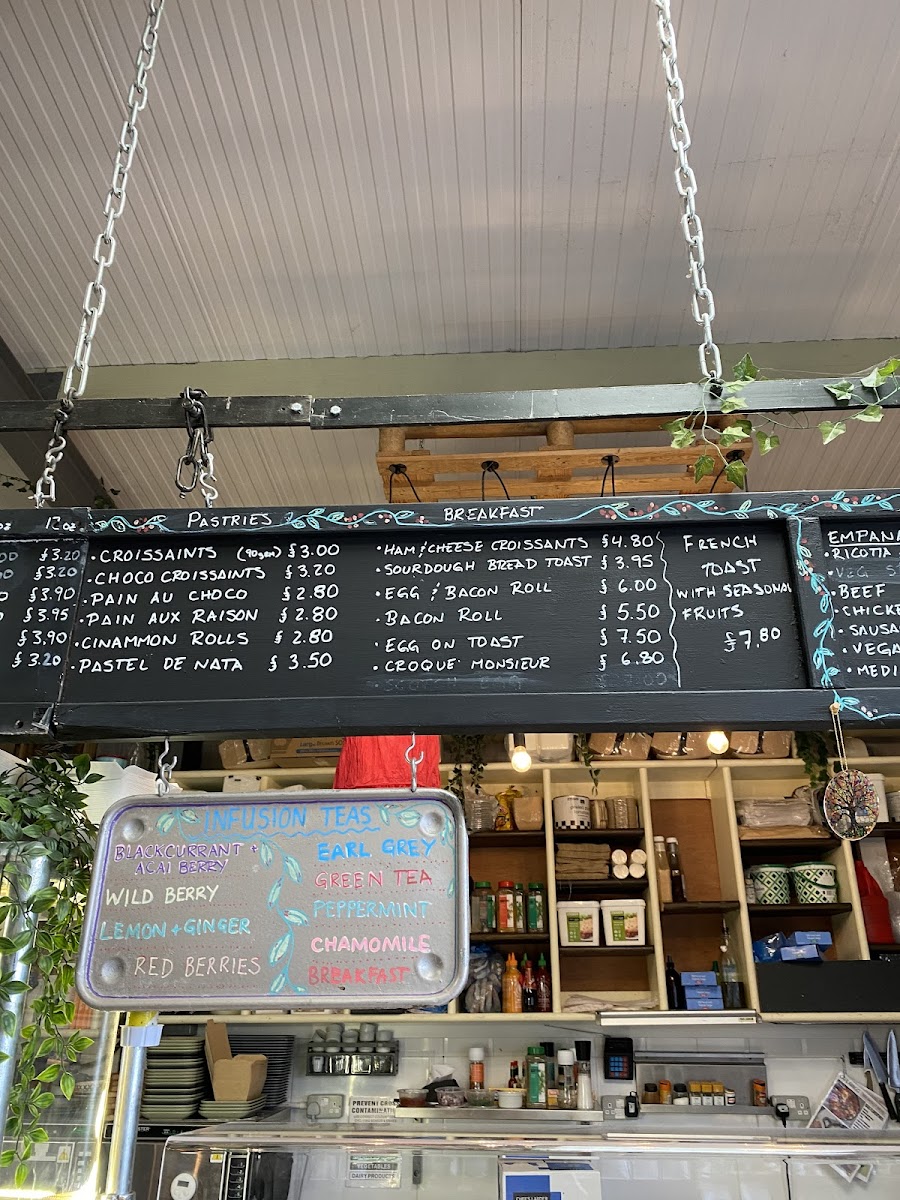 oz 12oz
£3.20
£3.20
£3.90
£3.95
£3,90
£3.20
PASTRIES
CROISSAINTS (90gm) £3.00
CHOCO CROISSAINTS £3.20
PAIN AU CHOCO £2.80
PAIN AUX RAISON £2.80
CINAMMON ROLLS £2.80
PASTEL DE NATA £3.50
BREAKFAST
HAM & CHEESE CROISSANTS £4.80
SOURDOUGH BREAD TOAST £3.95
EGG & BACON ROLL £6.00
BACON ROLL £5.50
EGG ON TOAST £7.50
CROQUE MONSIEUR £6.80
FRENCH
TOAST
WITH SEASONAL
FRUITS
£7.80
EMPANA
RICOTTA
VEG
BEEF
CHICKE
SAUSA
VEGA
MEDI
INFUSION TEAS
BLACKCURRANT +
ACAI BERRY
WILD BERRY
LEMON + GINGER
RED BERRIES
EARL GREY
GREEN TEA
PEPPERMINT
CHAMOMILE
BREAKFAST
PREVENT CROSS
CONTAMINATION
VEGETABLES
DAIRY PRODUCTS